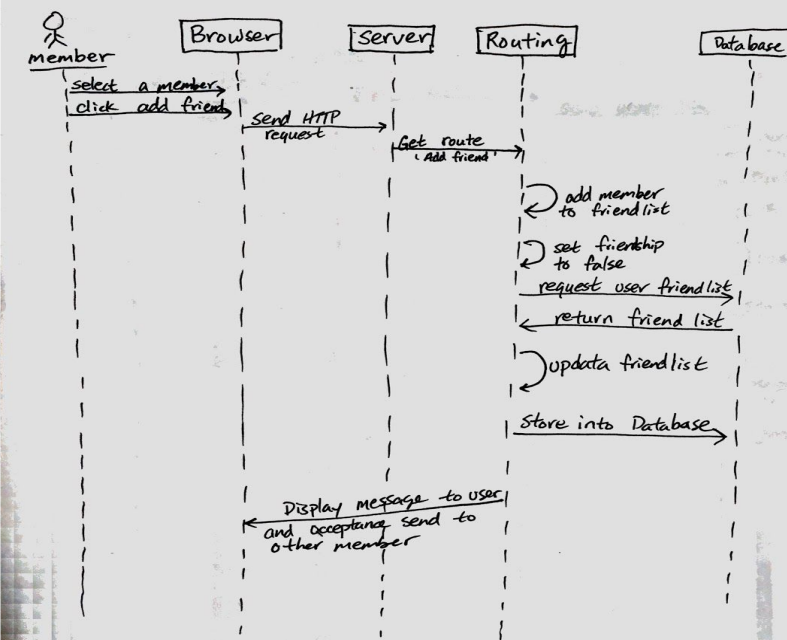 member
Browser
Server
Routing
Database
select a member
click add friend
Send HTTP
request
Get route
'Add friend'
add member
to friendlist
set friendship
to false
request user friendlist
return friend list
updata friendlist
Store into Database
Display message to user
and acceptance send to
other member